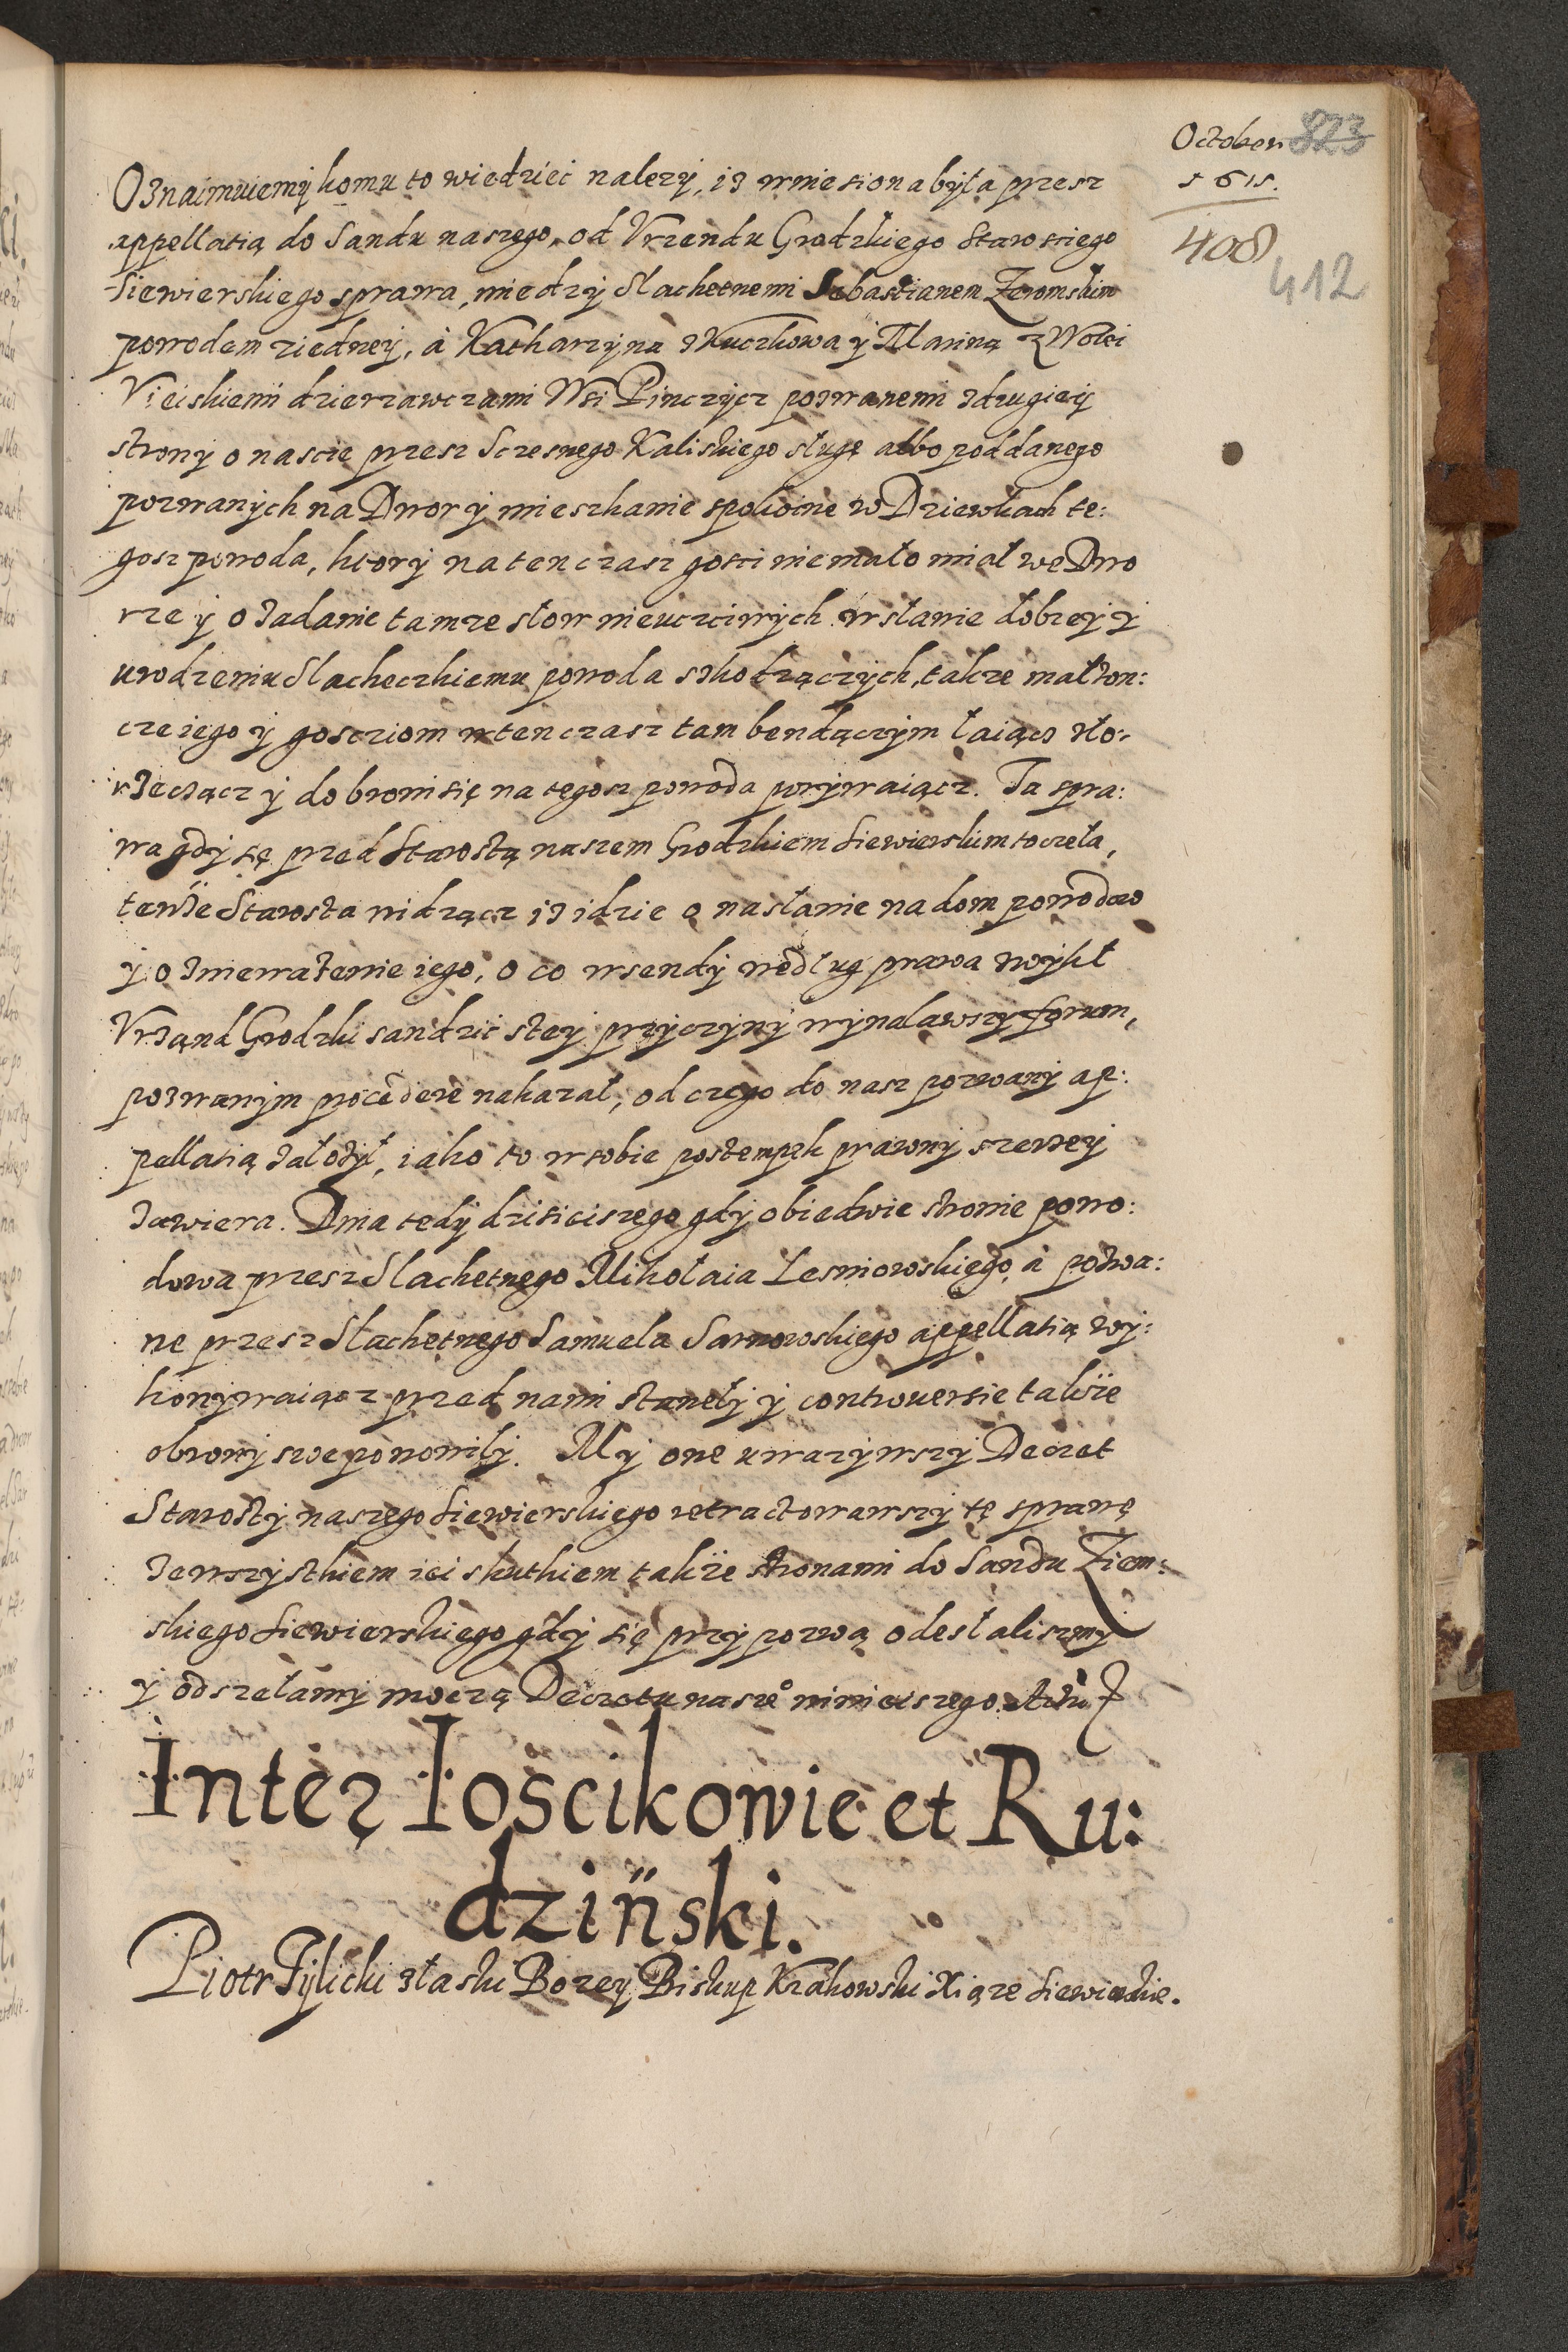 October 823
1615.
408
412
Oznaimuiemÿ komu to wiedziec nalezÿ, iz wniesiona bÿła przesz
appellatią do Sandu naszego, od Vrzendu Grodzkiego Starosciego
Siewierskiego sprawa, miedzÿ Slachetnemi Sebastianem Zeromskim
powodem ziedneÿ, à Katharzÿną zKuczkowa ÿ Mariną z Wolei
Vieiskiemi dzierzawczami Wsi Pinczÿcz pozwanemi zdrugieÿ
stronÿ o nascie przesz Sczesnego Kaliskiego sługę albo poddanego
pozwanÿch na Dwor ÿ mieszkanie spokoine w Dziewkach te:
gosz powoda, ktorÿ na ten czasz gosci niemało miał we Dwo
rze ÿ o zadanie tamze słow nieuczciwÿch w sławie dobreÿ ÿ
urodzeniu Slacheczkiemu powoda szkodzączÿch, takze małzon:
cze iego ÿ gosciom wtenczasz tam bendączÿm łaiącz zło:
rzecząc z ÿ do broni się na tegosz powoda porÿwaiącz. Ta spra:
wa gdÿ sę przed Starostą naszem Grodzkiem Siewierskim toczeła,
tenze Starosta widzącz iz idzie o nasłanie na dom powodow
ÿ o zniewazenie iego, o co wsendÿ według prawa zwÿkł
Vrzand Grodzki sandzic zteÿ przÿczÿnÿ wÿnalawszÿ forum,
pozwanÿm procedere nakazał, od czego do nasz pozwanÿ ap:
pellatią załozÿł, iako to w sobie postempek prawnÿ szerzeÿ
zawiera. Dnia tedÿ dzisieiszego gdÿ obiedwie stronie powo:
dowa przesz Slachetnego Mikołaia Lesniowskiego à pozwa:
ne przesz Slachetnego Samuela Sarnowskiego appellatią wÿ:
konÿwaiącz przed nami stanełÿ ÿ controuersie takze
obronÿ swe ponowiłÿ. Mÿ one uwazÿwszÿ Decret
Starostÿ naszego Siewierskiego retractowawszÿ tę sprawę
ze wszÿstkiem iei skutkiem takze stronami do Sandu Ziem:
skiego Siewierskiego gdÿ się przÿpozwą odesłaliszmÿ
ÿ odszełamÿ moczą Decretu nasze° ninieiszego.
Inter Ioscikowie et Ru:
dziński.
Piotr Tÿlicki złaski Bozeÿ Biskup Krakowski Xiąze Siewierskie.